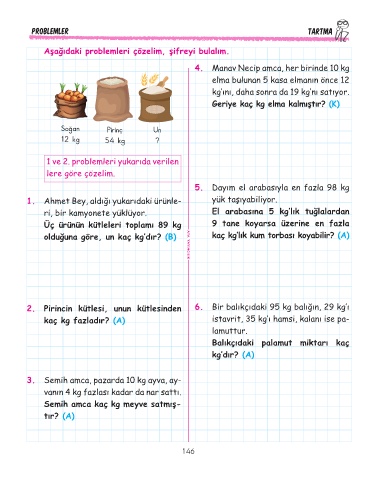 PROBLEMLER
TARTMA
Aşağıdaki problemleri çözelim, şifreyi bulalım.
Soğan
Pirinç
Un
12 kg
54 kg
?
1 ve 2. problemleri yukarıda verilen
lere göre çözelim.
1. Ahmet Bey, aldığı yukarıdaki ürünle-
ri, bir kamyonete yüklüyor.
Üç ürünün kütleleri toplamı 89 kg
olduğuna göre, un kaç kg'dır? (B)
2. Pirincin kütlesi, unun kütlesinden
kaç kg fazladır? (A)
3. Semih amca, pazarda 10 kg ayva, ay-
vanın 4 kg fazlası kadar da nar sattı.
Semih amca kaç kg meyve satmış-
tır? (A)
4. Manav Necip amca, her birinde 10 kg
elma bulunan 5 kasa elmanın önce 12
kg'ını, daha sonra da 19 kg'nı satıyor.
Geriye kaç kg elma kalmıştır? (K)
5. Dayım el arabasıyla en fazla 98 kg
yük taşıyabiliyor.
El arabasına 5 kg'lık tuğlalardan
9 tane koyarsa üzerine en fazla
kaç kg'lık kum torbası koyabilir? (A)
6. Bir balıkçıdaki 95 kg balığın, 29 kg'ı
istavrit, 35 kg'ı hamsi, kalanı ise pa-
lamuttur.
Balıkçıdaki palamut miktarı kaç
kg'dır? (A)
146